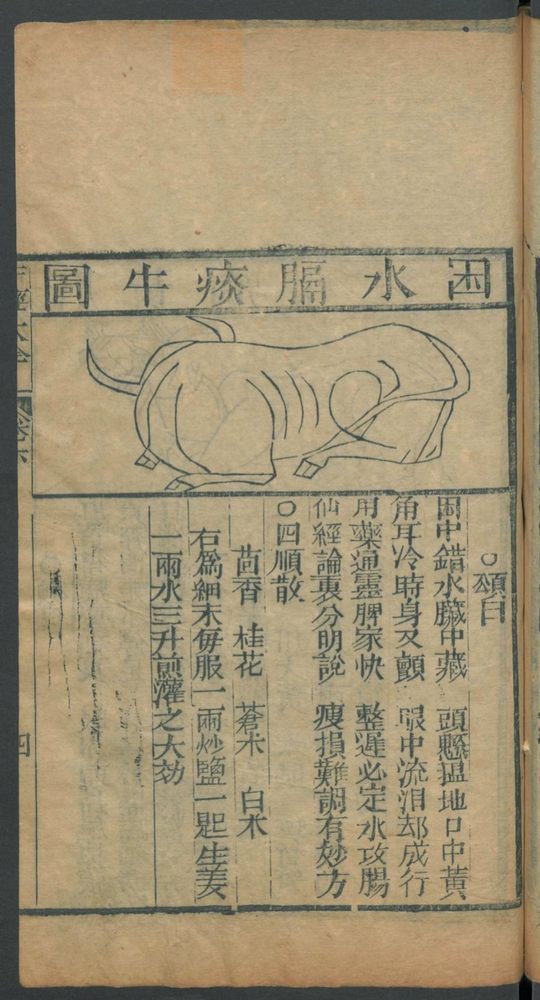 困水膈痰牛圖
○頌曰
困中錯水臟中藏　頭懸搵地口中黃
角耳冷時身又顫　眼中流泪却成行
用藥通靈脾家快　整遲必定水攻腸
仙經論裏分明說　瘦損難調有妙方
○四順散
茴香　桂花　蒼朮　白朮
右為細末每服一兩炒鹽一匙生姜
一兩水三升煎灌之大効
四